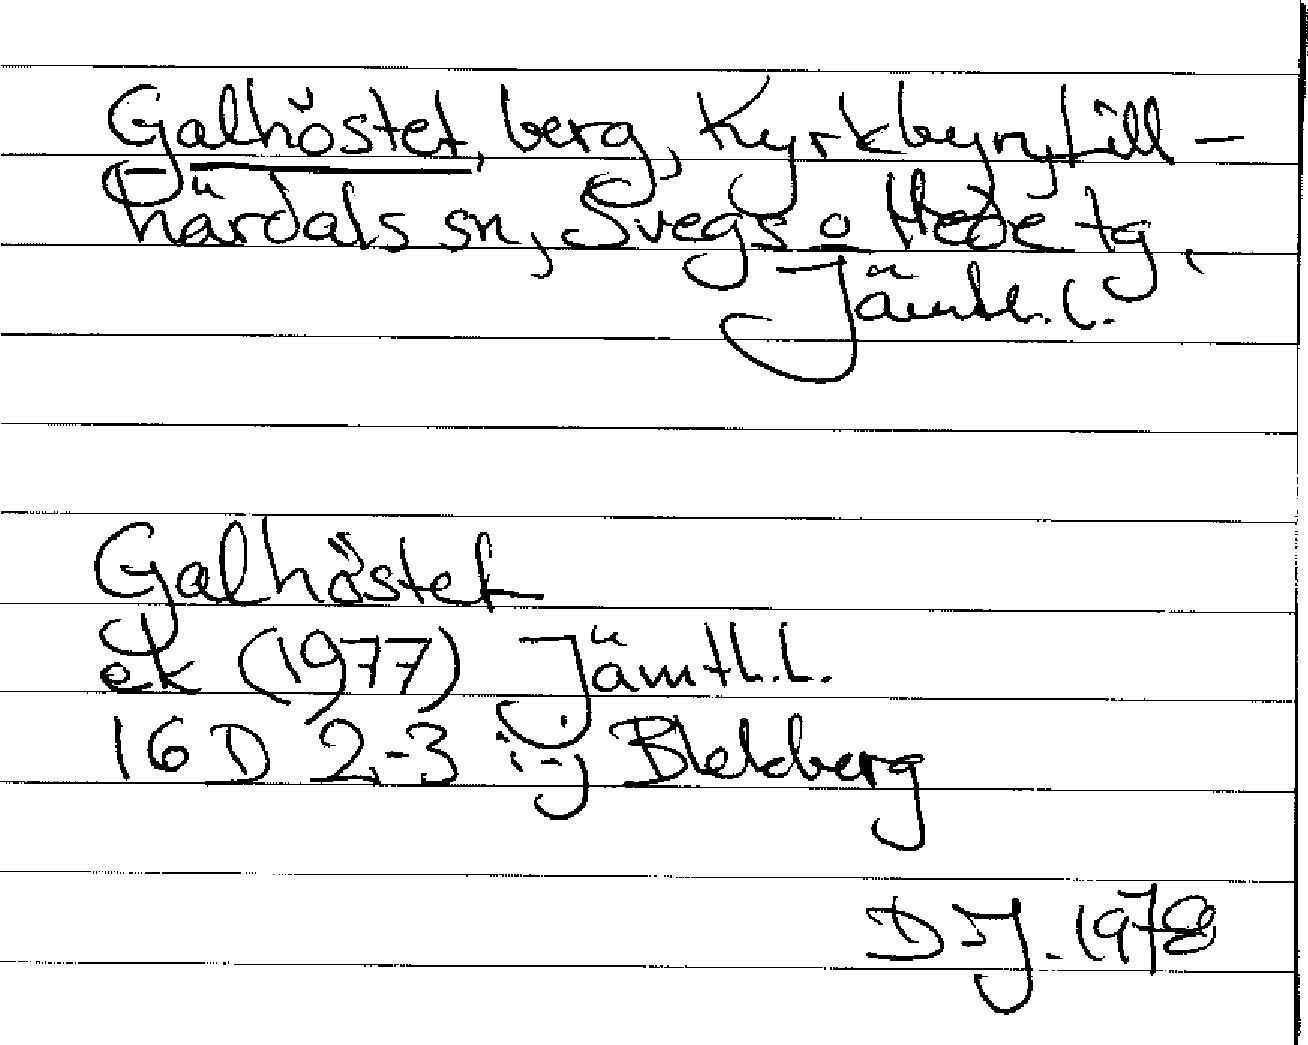 Galhöstet, berg, Kyrkbyn, Lill-
härdals sn, Svegs o Hede tg,
Jämtl. l.
Galhöstet
ek (1977) Jämtl. l.
16 D 2-3 i-j Blekberg
D J. 1978